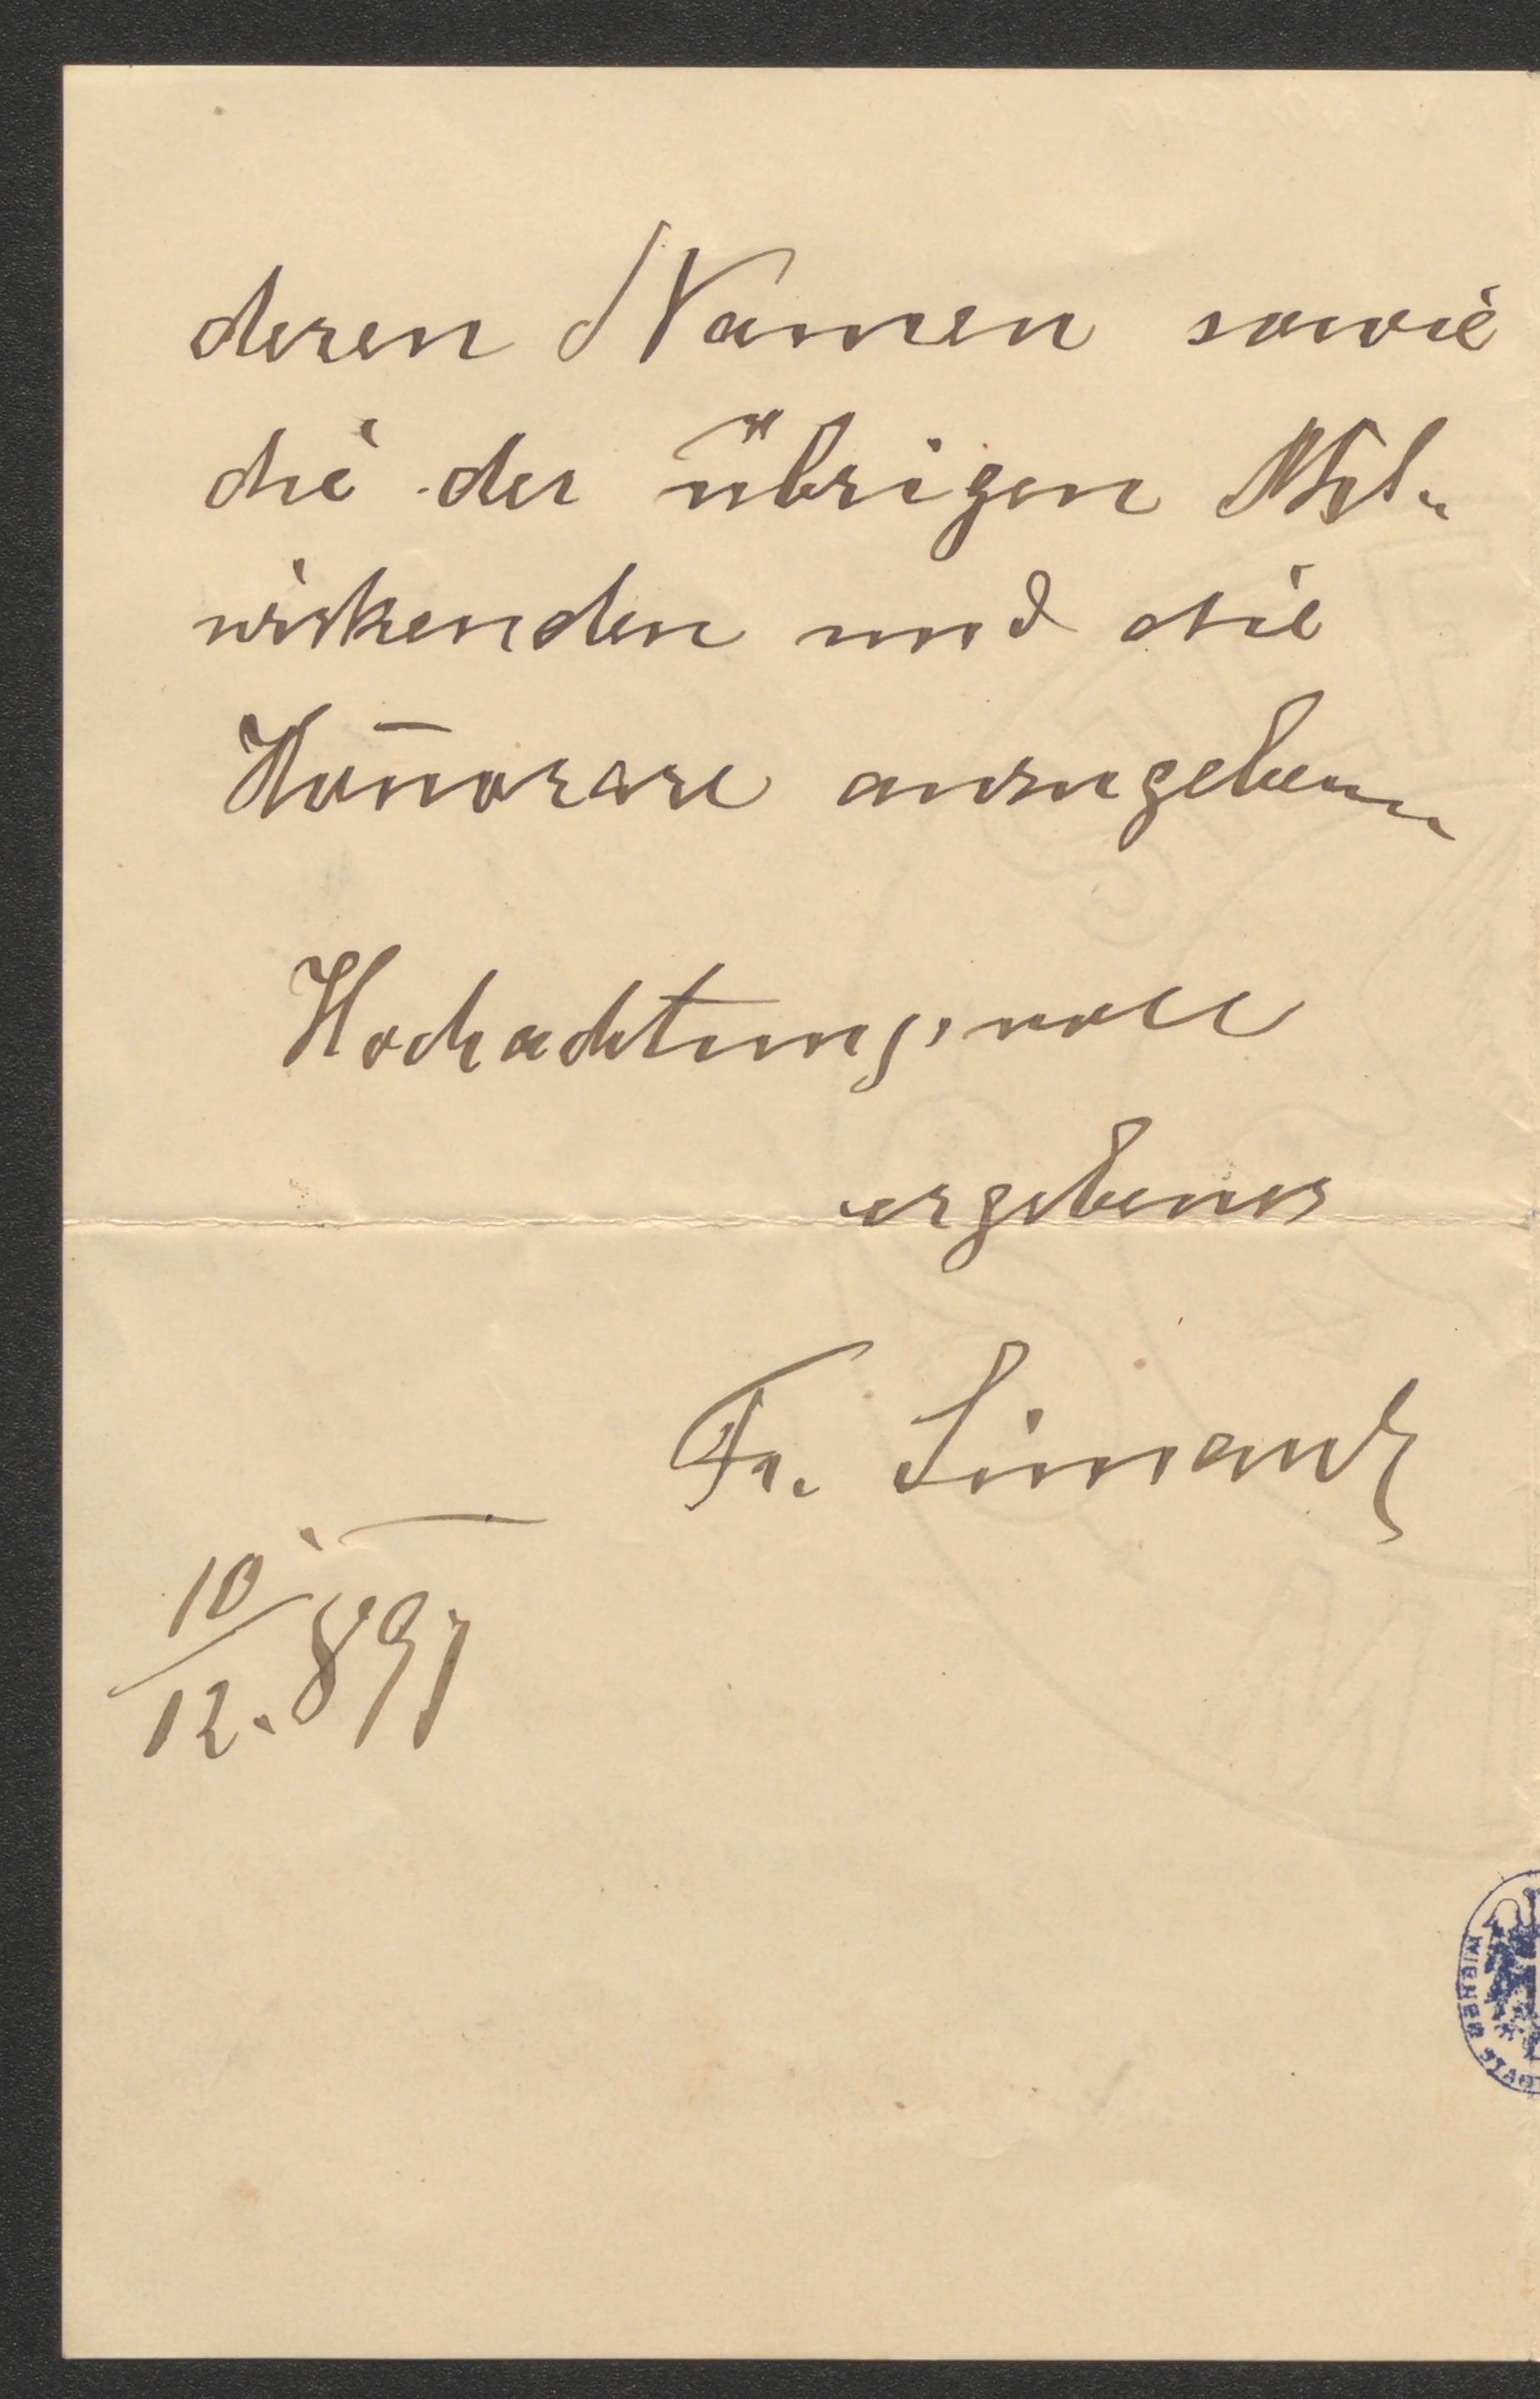 deren Namen sowie
die der übrigen Mit-
wirkenden und die
Honorare anzugeben
Hochachtungsvoll
ergebener
Fr. Simandl
10/12. 897